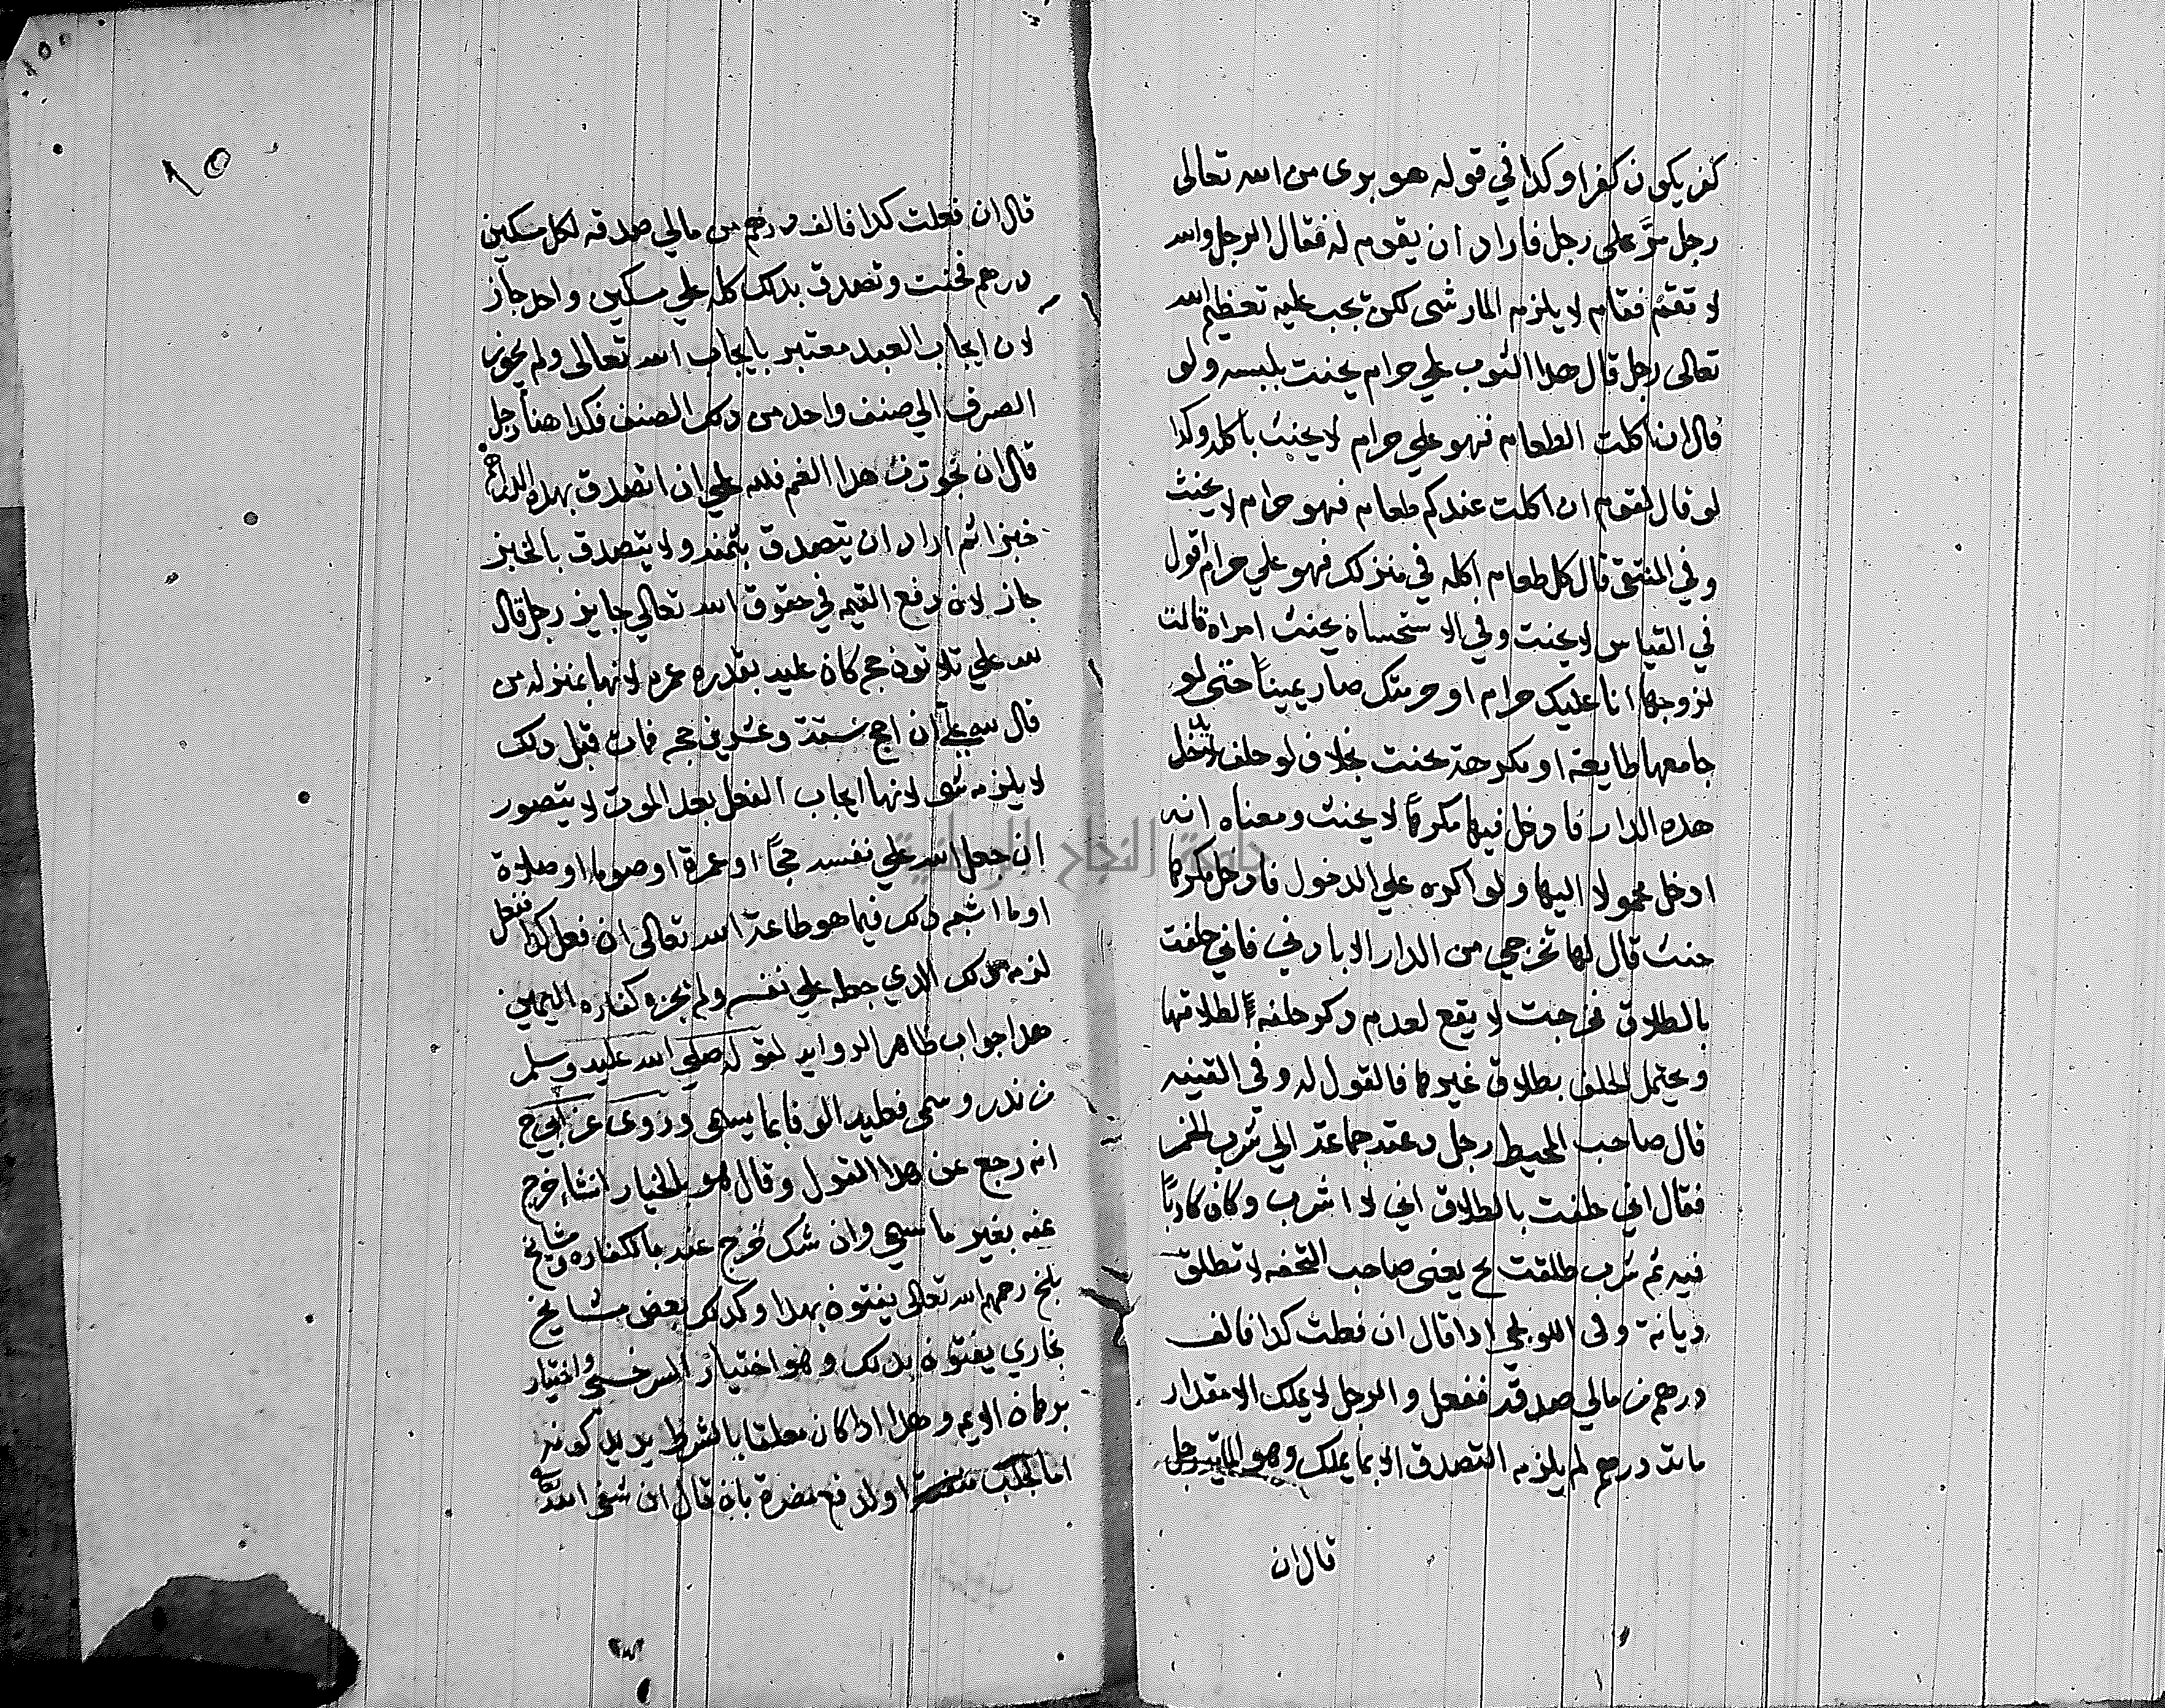 كفر يكون كفرا وكدا في قوله هو برى من الله تعالى
رجل مرَّ على رجل فاراد ان يقوم له فقال الرجل والله
لا تقم فقام لا يلزم المار شى لكن يجب عليه تعظيم الله
تعالى رجل قال هدا الثوب علي حرام يحنث بلبسه ولو
قال ان اكلت الطعام فهو علي حرام لا يحنث باكله وكدا
لو قال لقوم ان اكلت عندكم طعام فهو حرام لا يحنث
وفي المنتقى قال كل طعام اكله في منزلك فهو علي حرام اقول
في القياس لا يحنث وفي الاستحسان يحنث امراة قالت
لزوجها انا عليك حرام او حرمتك صار يميناً حتى لو
جامعها طايعة او مكرهة تحنث بخلاف لو حلف لا يدخل
هده الدار فادخل فيها مكرهاً لا يحنث ومعناه انه
ادخل محمولا اليها ولو اكره علي الدخول فادخل مكرها
حنث قال لها تخرجي من الدار الا بادني فاني حلفت
بالطلاق فخرجت لا يقع لعدم دكر حلفه لطلاقها
ويحتمل الحلف بطلاق غيرها فالقول له وفي القنيه
قال صاحب المحيط رجل دعته جماعة الي شرب الخمر
فقال اني حلفت بالطلاق اني لا اشرب وكان كادباً
فيه ثم شرب طلقت ح يعنى صاحب التحفه لا تطلق
ديانة وفى اللولجي ادا قال ان فعلت كدا فالف
درهم من مالي صدقة ففعل والرجل لا يملك الا مقدار
ماىة درهم لم يلزمه التصدق الا بما يملك وهو الماية رجل
قال ان
١٥
قال ان فعلت كدا فالف درهم من مالي صدقه لكل مسكين
درهم فحنث وتصدق بدلك كله علي مسكين واحد جاز
لان ايجاب العبد معتبر بايجاب الله تعالى ولم يجوز
الصرف الي صنف واحد من دلك الصنف فكدا هنا رجل
قال ان نجوت من هدا الغم فلله علي ان اتصدق بهده الدراهم
خبزا ثم اراد ان يتصدق بثمنه ولا يتصدق بالخبز
جاز لان دفع القيمه في حقوق الله تعالي جايز رجل قال
لله علي ثلاثون حج كان عليه بقدر عمره لانها بمنزله من
قال لله علي ان احج ستة وعشرين حجه فمات قبل دلك
لا يلزمه شى لانها ايجاب الفعل بعد الموت لا يتصور
ان جعل لله علي نفسه حجاً او عمرة او صوما او صلاة
او ما اشبه دلك فيما هو طاعة الله تعالى ان فعل كدا ففعل
لزمه دلك الدي جعله علي نفسه ولم يجزه كفاره اليمين
هدا جواب ظاهر الروايه لقوله صلي الله عليه وسلم
من ندر وسمى فعليه الوفا بما يسمى وروى عن ابي ح
انه رجع عن هدا القول وقال هو بالخيار ان شا خرج
عنه بغير ما سمي وان شك خرج عنه بالكفاره ومشايخ
بلخ رحمهم الله تعالى يفتون بهدا وكدلك بعض مشايخ
بخاري يفتون بدلك وهو اختيار السرخسي واختيار
برهان الايمه وهدا ادا كان معلقا بالشرط يريد كونه
اما لجلب منفعة او لدفع مضرة بان قال ان شفى الله